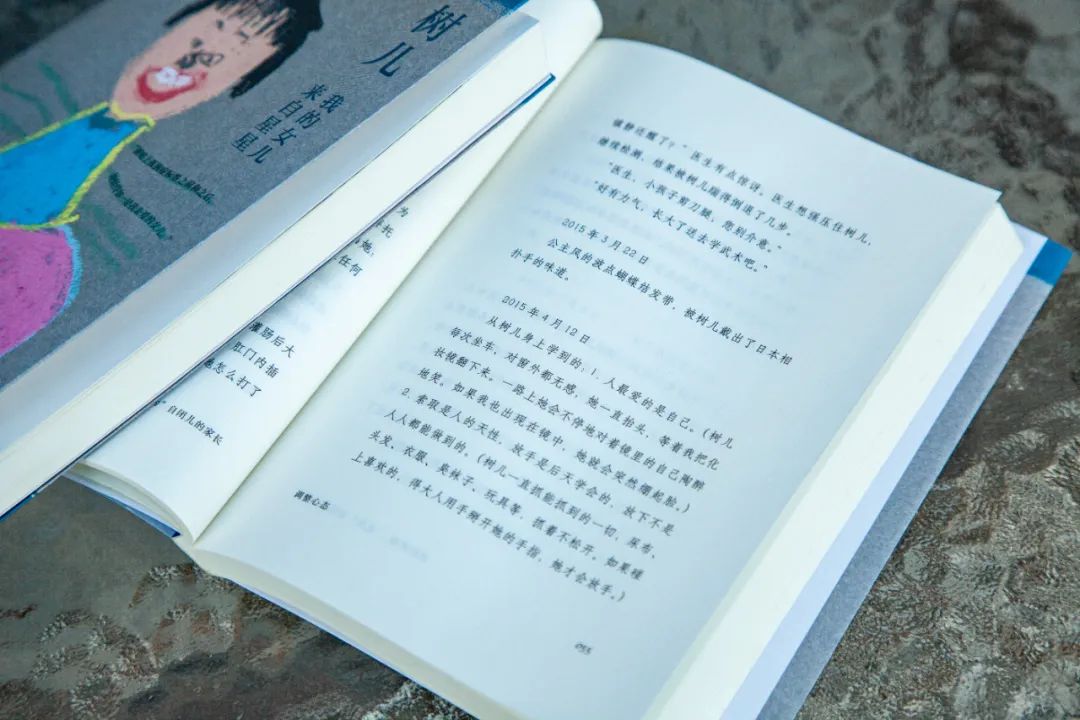 树儿
我的女儿
来自星星
为
托
她,
任何
灌肠后大
肛门内插
她怎么打了
”自闭儿的家长
镇静还醒了?”医生有点惊讶。医生想强压住树儿,
继续检测,结果被树儿蹬得倒退了几步。
“医生,小孩子剪刀腿,您别介意。”
“好有力气,长大了送去学武术吧。”
2015年3月22日
公主风的波点蝴蝶结发带,被树儿戴出了日本相
扑手的味道。
2015年4月12日
从树儿身上学到的:1.人最爱的是自己。(树儿
每次坐车,对窗外都无感,她一直抬头,等着我把化
妆镜翻下来。一路上她会不停地对着镜里的自己陶醉
地笑。如果我也出现在镜中,她就会突然绷起脸。)
2.索取是人的天性,放手是后天学会的,放下不是
人人都能做到的。(树儿一直抓能抓到的一切,尿布、
头发、衣服、臭袜子、玩具等,抓着不松开。如果碰
上喜欢的,得大人用手掰开她的手指,她才会放手。)
调整心态
055